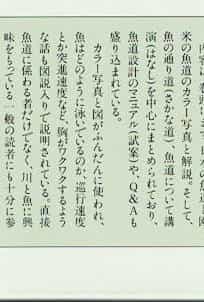 米の魚道のカラー写真と解説。そして、
魚の通り道(さかな道)、魚道について講
演(はなし)を中心にまとめられており、
魚道設計のマニュアル(試案)や、Q&Aも
盛り込まれている。
カラー写真と図がふんだんに使われ、
魚はどのように泳いでいるのか、巡行速度
とか突進速度など、胸がワクワクするよう
な話も図説入りで説明されている。直接
魚道に係わる者だけでなく、川と魚に興
味をもっている一般の読者にも十分に参